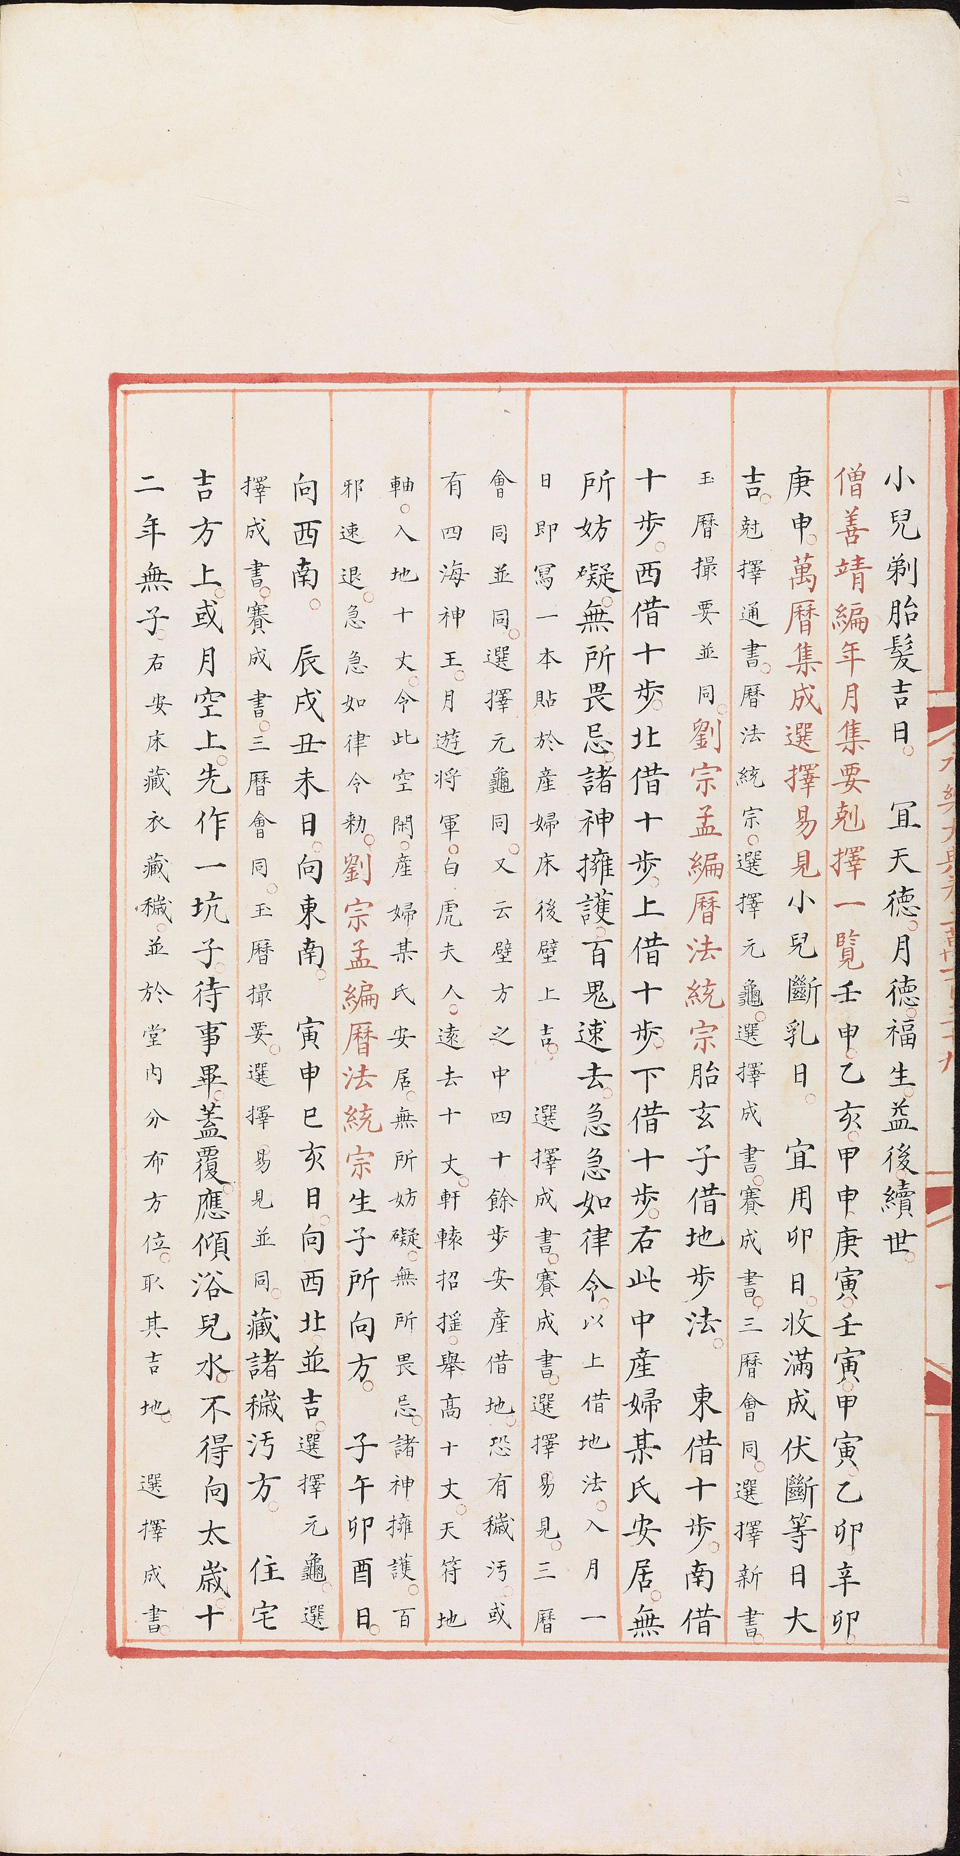 小兒剃胎髮吉日。　宜天德。月德。福生。益後。續世。
僧善靖編年月集要剋擇一覽壬申。乙亥。甲申。庚寅。壬寅。甲寅。乙卯。辛卯。
庚申。萬曆集成選擇易見小兒斷乳日。　宜用卯日。收滿成伏斷等日大
吉。尅擇通書。曆法統宗。選擇元龜。選擇成書。賽成書。三曆會同。選擇新書。
玉曆撮要並同。劉宗孟編曆法統宗胎玄子借地步法。　東借十步。南借
十步。西借十步。北借十步。上借十步。下借十步。右此中產婦某氏安居。無
所妨礙。無所畏忌。諸神擁護。百鬼速去。急急如律令。以上借地法。入月一
日即寫一本貼於產婦床後壁上吉。　選擇成書。賽成書。選擇易見。三曆
會同並同。選擇元龜同。又云壁方之中四十餘步安產借地。恐有穢污。或
有四海神王。月遊將軍。白虎夫人。遠去十丈。軒轅招搖。舉高十丈。天符地
軸。入地十丈。令此空閑。產婦某氏安居。無所妨礙。無所畏忌。諸神擁護。百
邪速退。急急如律令勑。劉宗孟編曆法統宗生子所向方。　子午卯酉日。
向西南。　辰戌丑未日。向東南。　寅申巳亥日。向西北。並吉。選擇元龜。選
擇成書。賽成書。三曆會同。玉曆撮要。選擇易見並同。藏諸穢汚方。　住宅
吉方上。或月空上。先作一坑子。待事畢。蓋覆。應傾浴兒水。不得向太歲十
二年無子。右安床藏衣藏穢。並於堂內分布方位。取其吉地。　選擇成書。